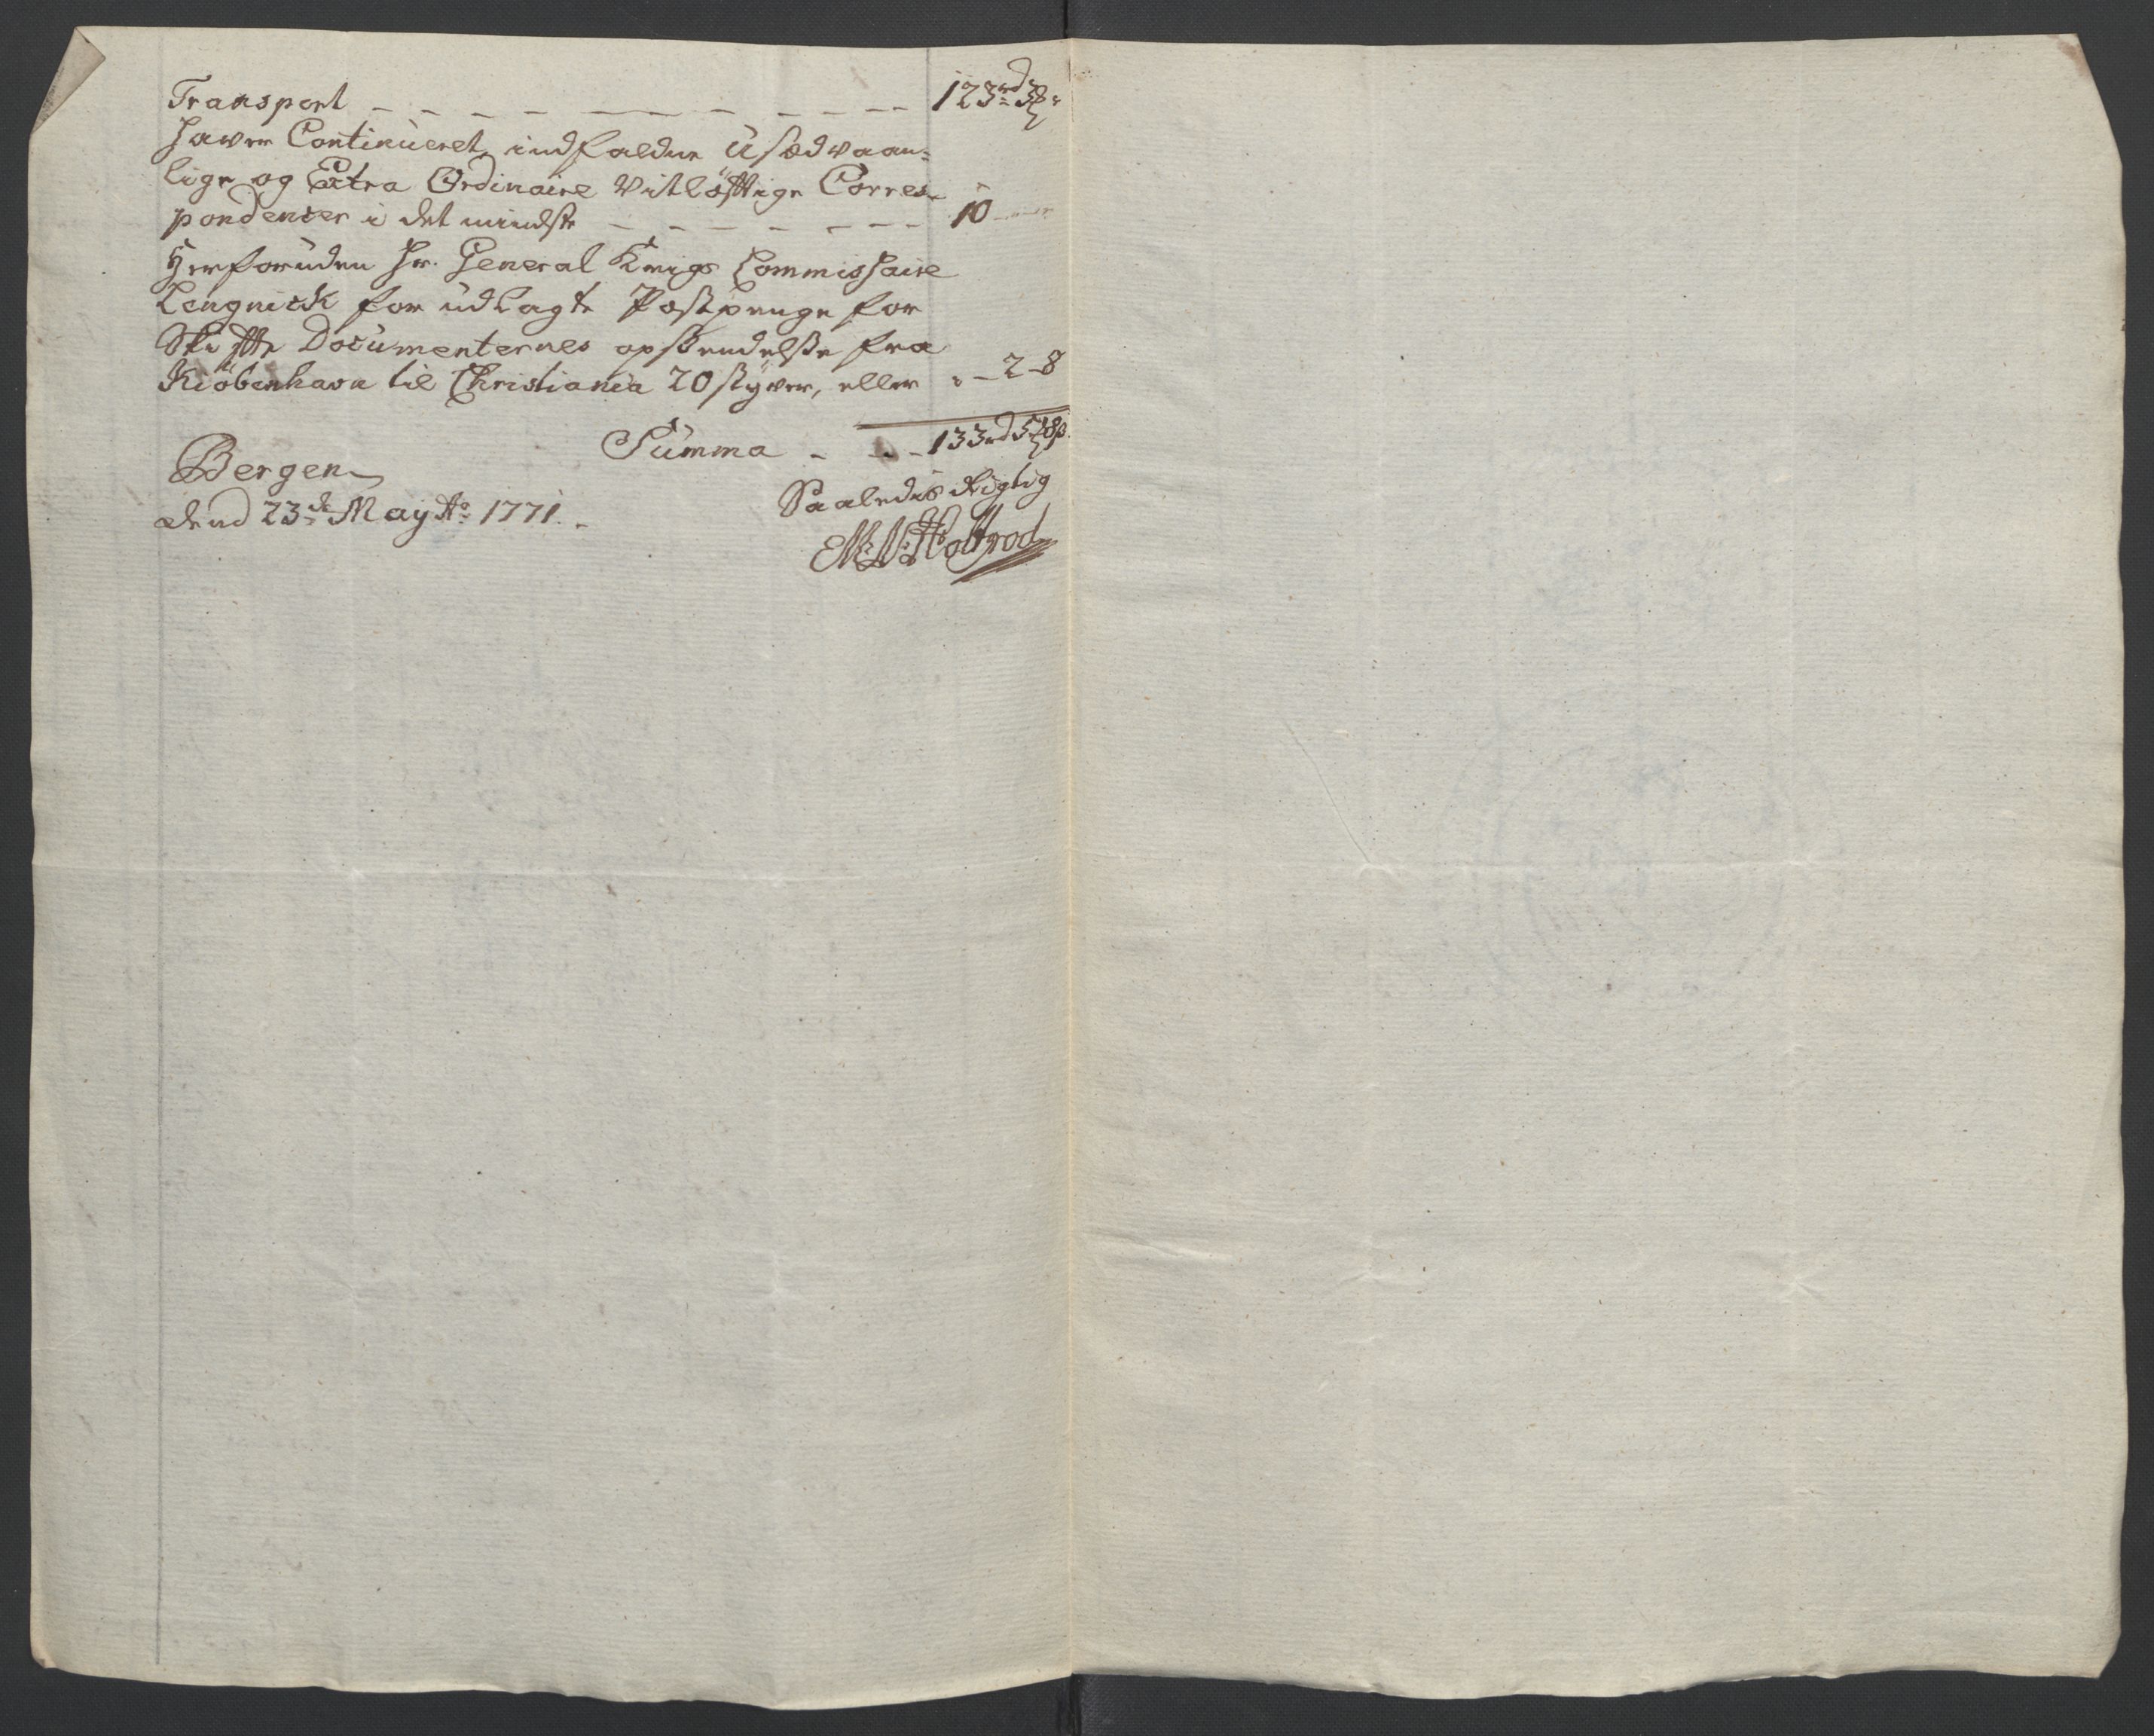 Transport - - - - - - - - - - 123rd 3
haver Continueret, indfaldne Usædvaan-
lige og Extra Ordinaire Vitløftige Corres-
pondencer i det mindste - - - - - - - 10
Herforuden Hr. General Krigs Commissaire
Lengnick for udlagte Postpenge for
Skifte Documenternes opsendelse fra
Kiøbenhavn til Christiania 20 styver, eller " - 2 - 8
Summa - - - 133rd 5 8s
Bergen
dend 23de May Ao 1771. -
Saaledis Rigtig